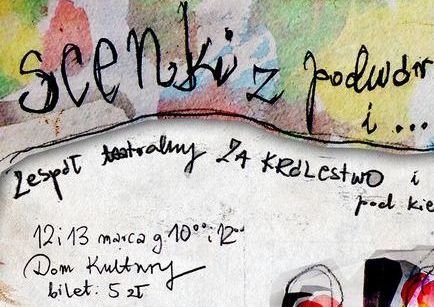 scenki z podwór
i ...
Zespół teatralny ZA KRÓLESTWO i
pod kie
12 i 13 marca g. 10⁰⁰ i 12⁰⁰
Dom Kultury
bilet: 5 zł